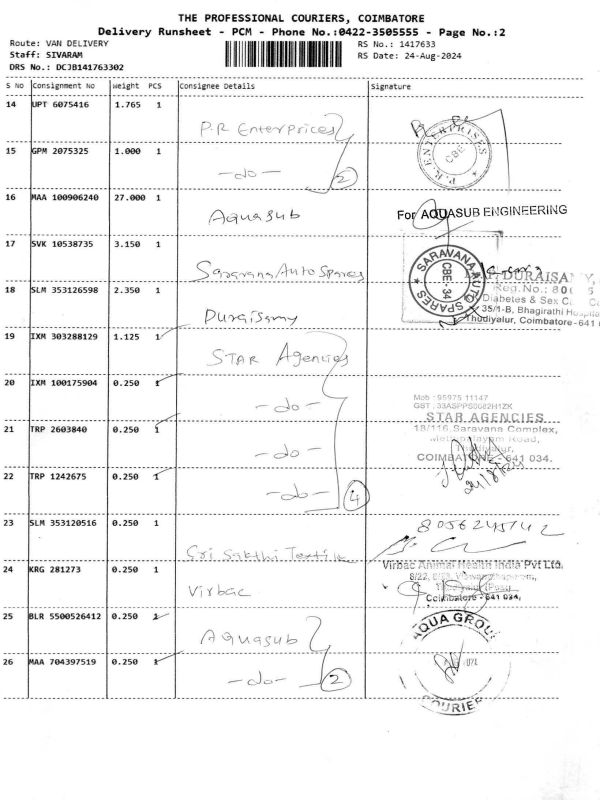 THE PROFESSIONAL COURIERS, COIMBATORE
Delivery Runsheet - PCM - Phone No.:0422-3505555 - Page No.:2
Route: VAN DELIVERY RS No.: 1417633
Staff: SIVARAM RS Date: 24-Aug-2024
DRS No.: DCJB141763302
S No Consignment No Weight PCS Consignee Details Signature
14 UPT 6075416 1.765 1
P.R Enterprices
P.R. ENTERPRISES CBE
15 GPM 2075325 1.000 1
-do- 2
16 MAA 100906240 27.000 1
Aquasub
For AQUASUB ENGINEERING
17 SVK 10538735 3.150 1
Saravana Auto Spares
SARAVANA AUTO SPARES CBE-34
DURAISAMY,
Reg.No.: 80
Diabetes & Sex
35/1-B, Bhagirathi Hospital
Thudiyalur, Coimbatore-641
18 SLM 353126598 2.350 1
Duraisamy
19 IXM 303288129 1.125 1
STAR Agencies
20 IXM 100175904 0.250 1
-do-
Mob : 95975 11147
GST : 33ASPPS0082H1ZK
STAR AGENCIES
18/116, Saravana Complex,
Mettupalayam Road,
Thudiyalur,
COIMBATORE - 641 034.
21 TRP 2603840 0.250 1
-do-
22 TRP 1242675 0.250 1
-do- 4
24/8/24
23 SLM 353120516 0.250 1
8056245742
Sri Sakthi Textile
24 KRG 281273 0.250 1
Virbac
Virbac Animal Health India Pvt Ltd.
Coimbatore - 641 034.
25 BLR 5500526412 0.250 1
Aquasub
AQUA GROUP
COURIER
26 MAA 704397519 0.250 1
-do- 2